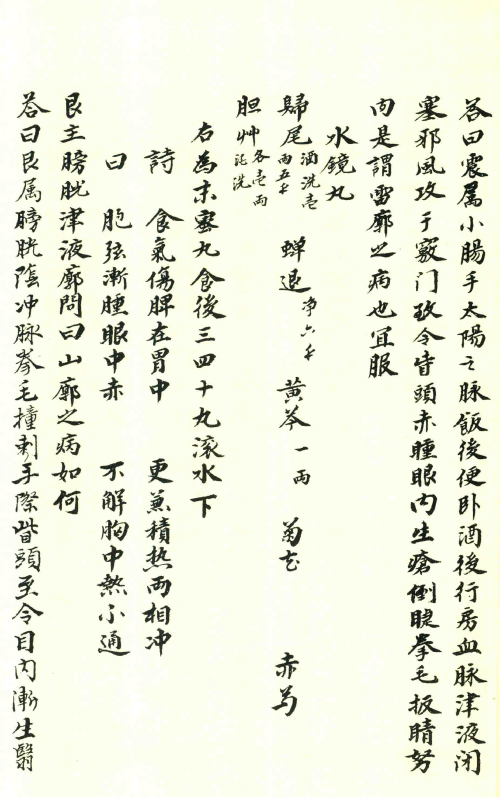 答曰震属小腸手太陽之脉飯後便卧酒後行房血脉津液闭
塞邪風攻于竅门致令眥頭赤腫眼内生瘡倒睫拳毛扳睛努
肉是謂雷廓之病也宜服
水鏡丸
歸尾酒洗壹兩五𠆤 蝉退净六𠆤 黄芩一兩 菊花 赤芍
胆艸各壹兩 酒洗
右為末蜜丸食後三四十丸滚水下
詩 食氣傷脾在胃中 更兼積热两相冲
曰 胞弦漸腫眼中赤 不解胸中熱小通
艮主膀胱津液廓問曰山廓之病如何
答曰艮属膀胱陰冲脉拳毛撞刺于際眥頭至令目内漸生翳